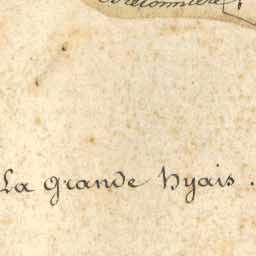 La grande hyais.